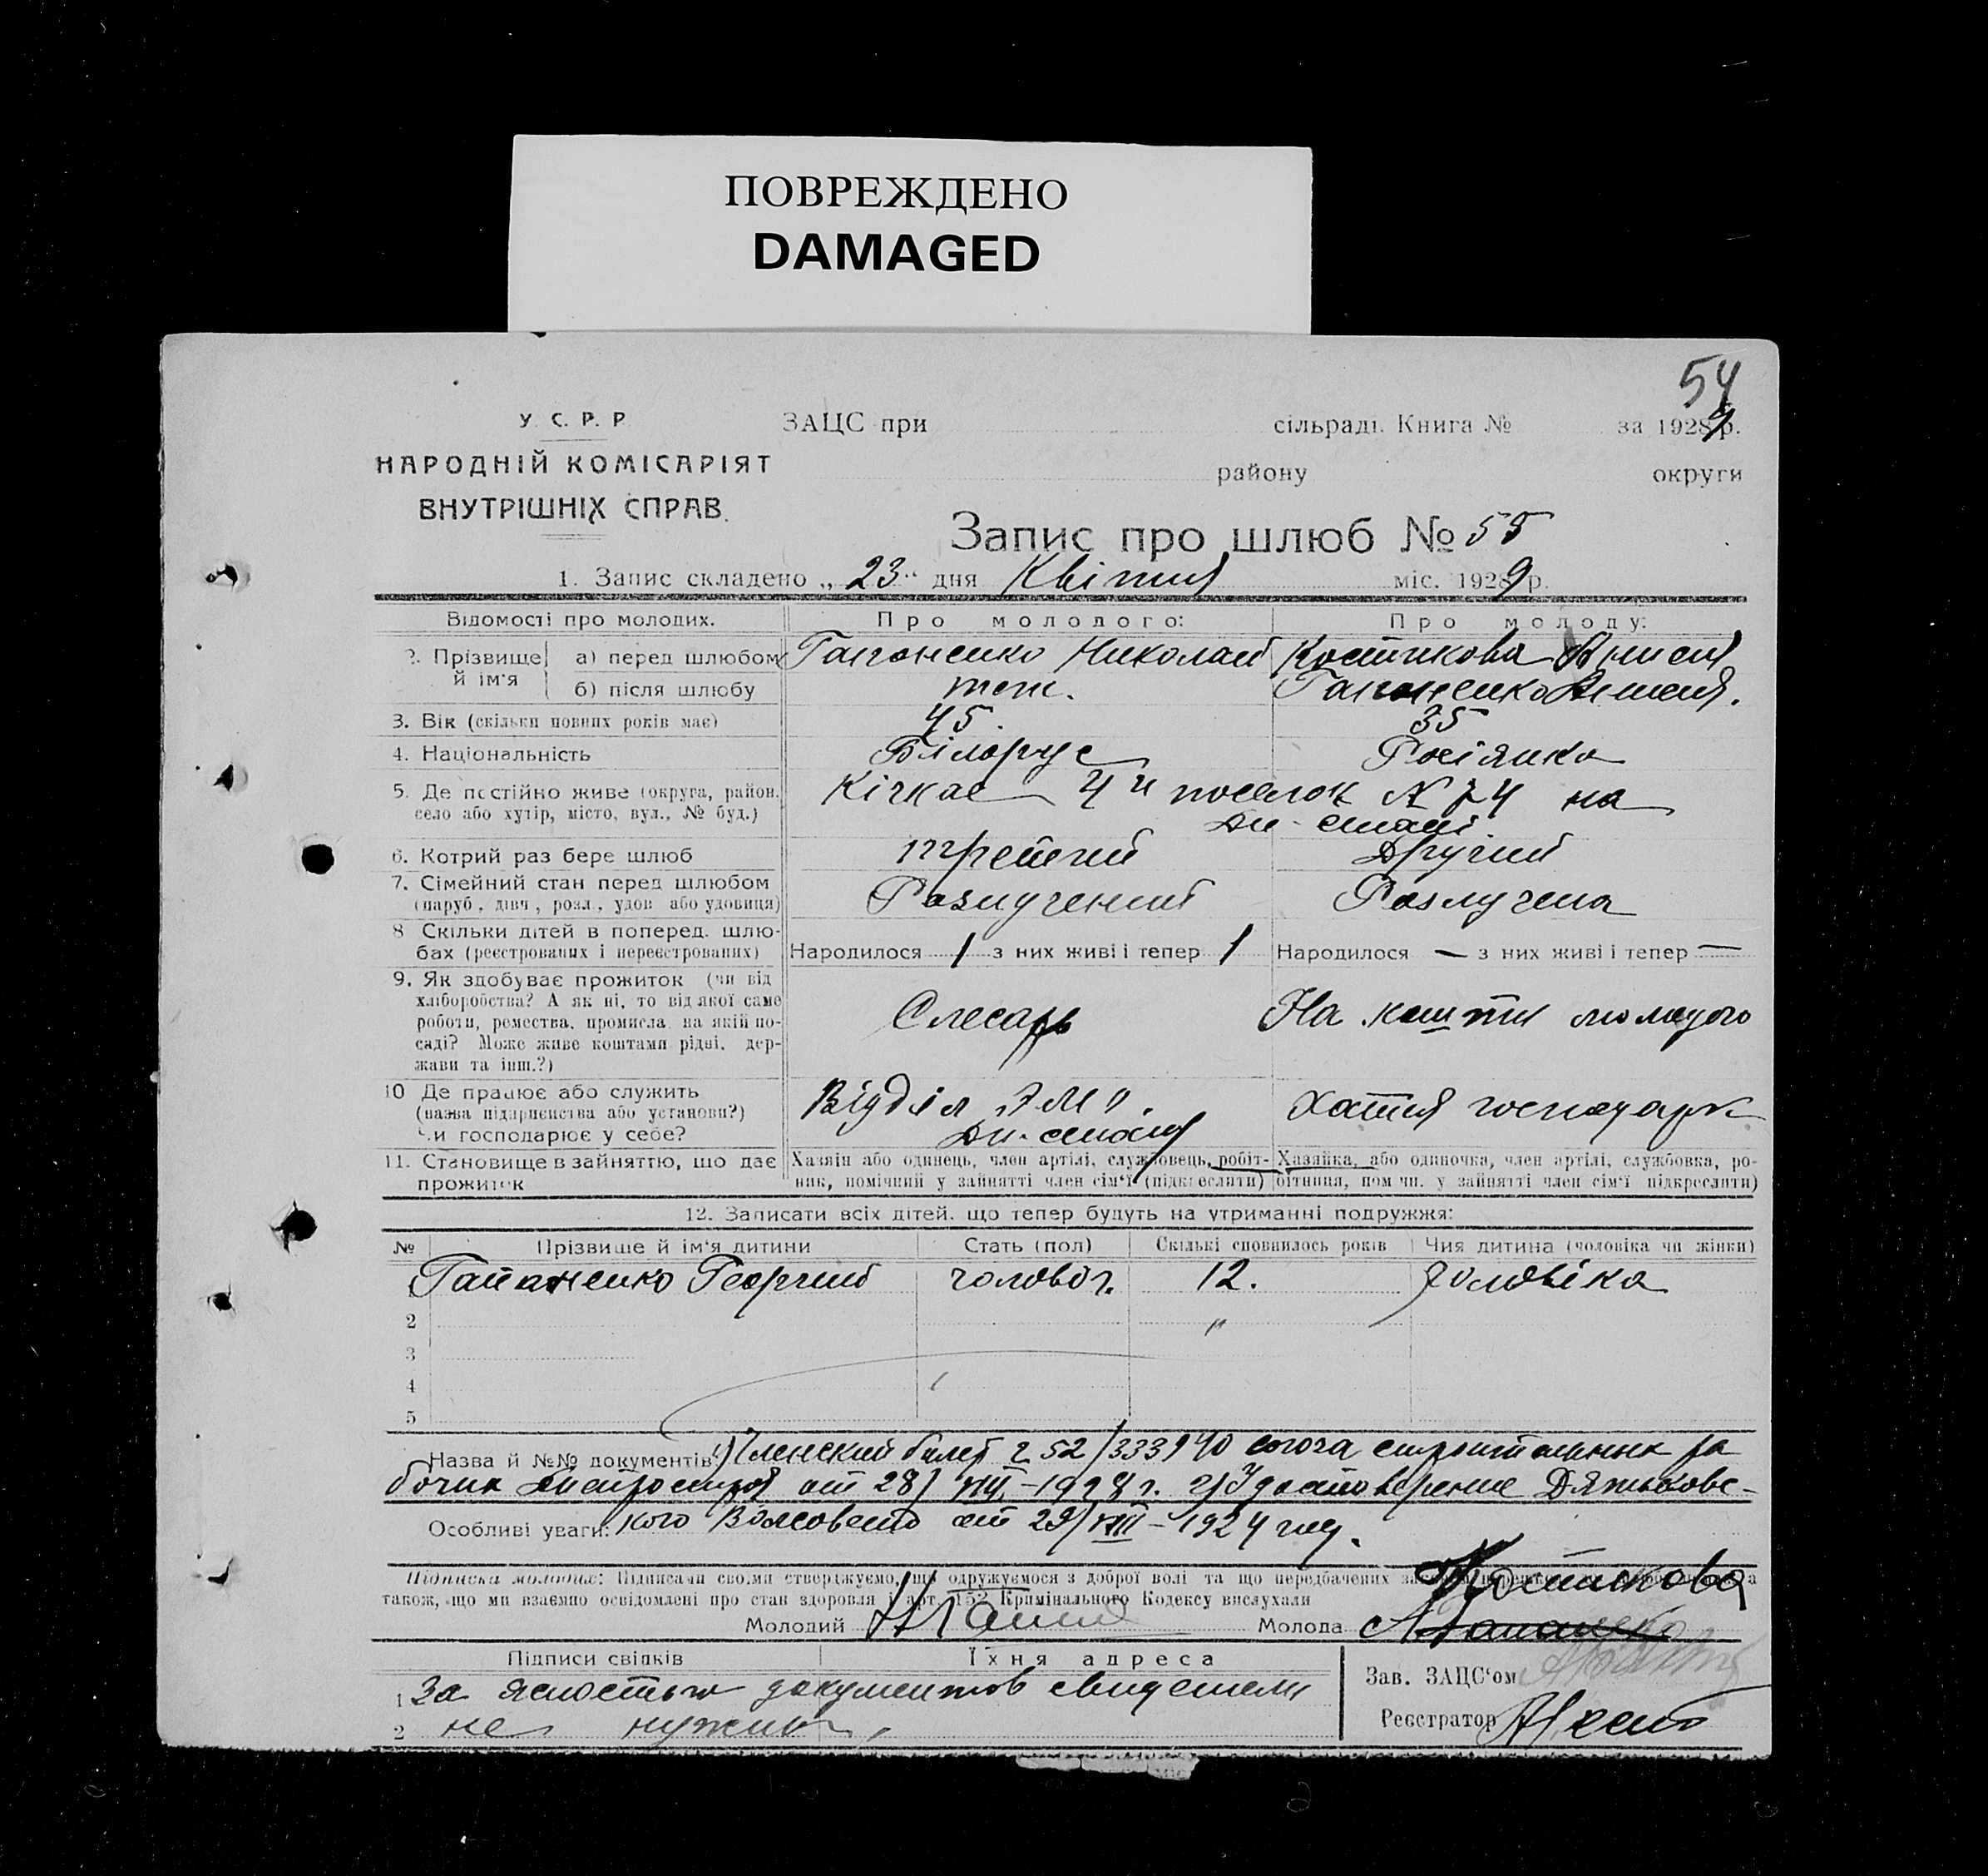 ПОВРЕЖДЕНО
DAMAGED
54
У. С. Р. Р.
НАРОДНІЙ КОМІСАРІЯТ
ВНУТРІШНІХ СПРАВ.
ЗАЦС при сільраді. Книга № за 1929 р.
району округи
Запис про шлюб № 55
1. Запис складено „23“ дня Квітня міс. 1929 р.
Відомості про молодих. Про молодого: Про молоду:
2. Прізвище й ім'я
а) перед шлюбом Гапоненко Николай Костикова
б) після шлюбу теж. Гапоненко
3. Вік (скільки повних років має) 45. 35
4. Національність Білорус Росіянка
5. Де постійно живе (округа, район, село або хутір, місто, вул., № буд.) Кічкас 4й поселок N 74 на
Дн-стані.
6. Котрий раз бере шлюб третий Другий
7. Сімейний стан перед шлюбом (паруб., дівч., розл., удов. або удовиця) Разлученый Разлучена
8. Скільки дітей в поперед. шлюбах (реєстрованих і нереєстрованих) Народилося 1 з них живі і тепер 1 Народилося — з них живі і тепер —
9. Як здобуває прожиток (чи від
хліборобства? А як ні, то від якої саме
роботи, ремества, промисла, на якій по-
саді? Може живе коштами рідні, дер-
жави та інш.?)
Слесарь На кошти молодого
10. Де працює або служить
(назва підприємства або установи?)
Чи господарює у себе?
Відділ „ЭМ“. Хатня господарк
11. Становище в зайняттю, що дає
прожиток
Хазяїн або одинець, член артілі, службовець, робіт-
ник, помічний у зайнятті член сім'ї (підкреслити)
Хазяйка, або одиночка, член артілі, службовка, ро-
бітниця, помічн. у зайнятті член сім'ї підкреслити)
12. Записати всіх дітей, що тепер будуть на утриманні подружжя:
№ Прізвище й ім'я дитини Стать (пол) Скількі сповнилось років Чия дитина (чоловіка чи жінки)
1 Гапаненко Георгий чоловіч. 12. Чоловіка
2 "
3
4
5
Назва й №№ документів: 1) Членский билет 252/333940 союза строительных ра
бочих Днепростроя от 28/VIII-1928 г. 2) Удостоверение Дятьковс-
Особливі уваги: кого от 29/VIII-1924 году.
Підписка молодих: Підписами своїми стверджуємо, що одружуємося з доброї волі та що передбачених
також, що ми взаємно освідомлені про стан здоровля і арт. 152 Кримінального Кодексу вислухали
Костикова
Молодий Молода
Підписи свідків Їхня адреса
1 За ясностью документов свидетели
2 не нужны.
Зав. ЗАЦС'ом
Реєстратор